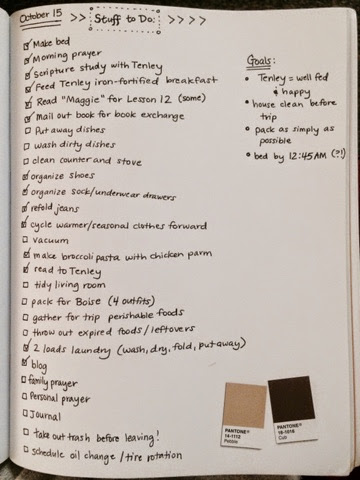 October 15 >> Stuff to Do: >>>>
Make bed
Morning prayer
Scripture study with Tenley
Feed Tenley iron-fortified breakfast
Read "Maggie" for Lesson 12 (some)
Mail out book for book exchange
Put away dishes
wash dirty dishes
clean counter and stove
organize shoes
organize sock/underwear drawers
refold jeans
cycle warmer/seasonal clothes forward
vacuum
make broccoli pasta with chicken parm
read to Tenley
tidy living room
pack for Boise (4 outfits)
gather for trip perishable foods
throw out expired foods/leftovers
2 loads laundry (wash, dry, fold, put away)
blog
family prayer
Personal prayer
Journal
take out trash before leaving!
schedule oil change/tire rotation
Goals:
Tenley = well fed
& happy
house clean before
trip
pack as simply as
possible
bed by 12:45AM (?!)
PANTONE®
14-1112
Pebble
PANTONE®
Cub